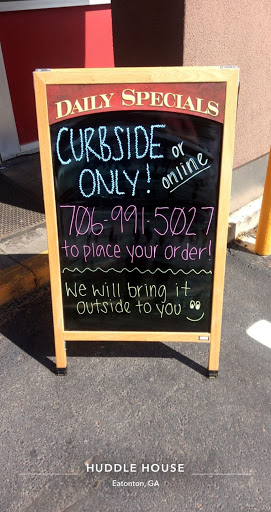 DAILY SPECIALS
CURBSIDE or
ONLY! online
706-991-5027
to place your order!
We will bring it
outside to you
HUDDLE HOUSE
Eatonton, GA